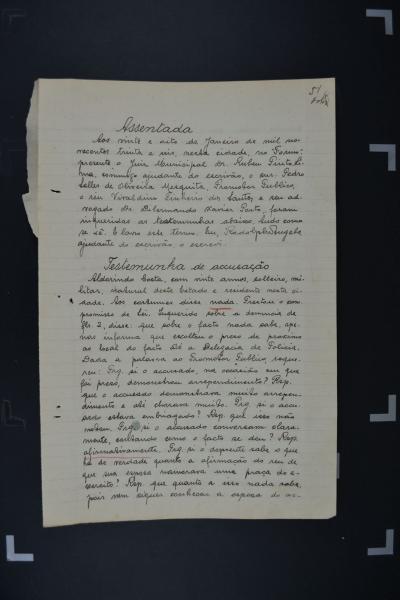 51
Assentada
Aos vinte e oito de Janeiro de mil no-
vecentos trinta e seis, nesta cidade, no Forum,
presente o Juiz Municipal Dr. Ruben Pinto Li-
ma, commigo ajudante do escrivão, o snr. Pedro
Salles de Oliveira Mesquita, Promotor Publico,
o reu Vivaldino dos Santos, e seu ad-
vogado Dr. Dilermando Xavier Porto, foram
inqueridas as testemunhas abaixo, tudo como
se vê. E lavro este termo. Eu, Rodolpho
ajudante do escrivão o escrevi.
Testemunha de accusação
Aldorindo Costa, com vinte annos, solteiro, mi-
litar, natural deste Estado e residente nesta ci-
dade. Aos costumes disse nada. Prestou o com-
promisso de Lei. Inquerido sobre a denuncia de
fls. 2, disse: que sobre o facto nada sabe, ape-
nas informa que escoltou o preso de proximo
ao local do facto até a Delegacia de Policia.
Dada a palavra ao Promotor Publico, reque-
reu: Prg. si o accusado, na occasião em que
foi preso, demonstrou arrependimento? Resp.
que o accusado demonstrava muito arrepen-
dimento e até chorava muito. Prg. si o accu-
sado estava embriagado? Resp. que isso não
notou. Prg. si o accusado conversava clara-
mente, contando como o facto se deu? Resp.
afirmativamente. Prg. si o depoente sabe o que
ha de verdade quanto a afirmação do reu de
que sua esposa namorava uma praça do e-
xercito? Resp. que quanto a isso nada sabe,
pois nem siquer conhecia a esposa do ac-